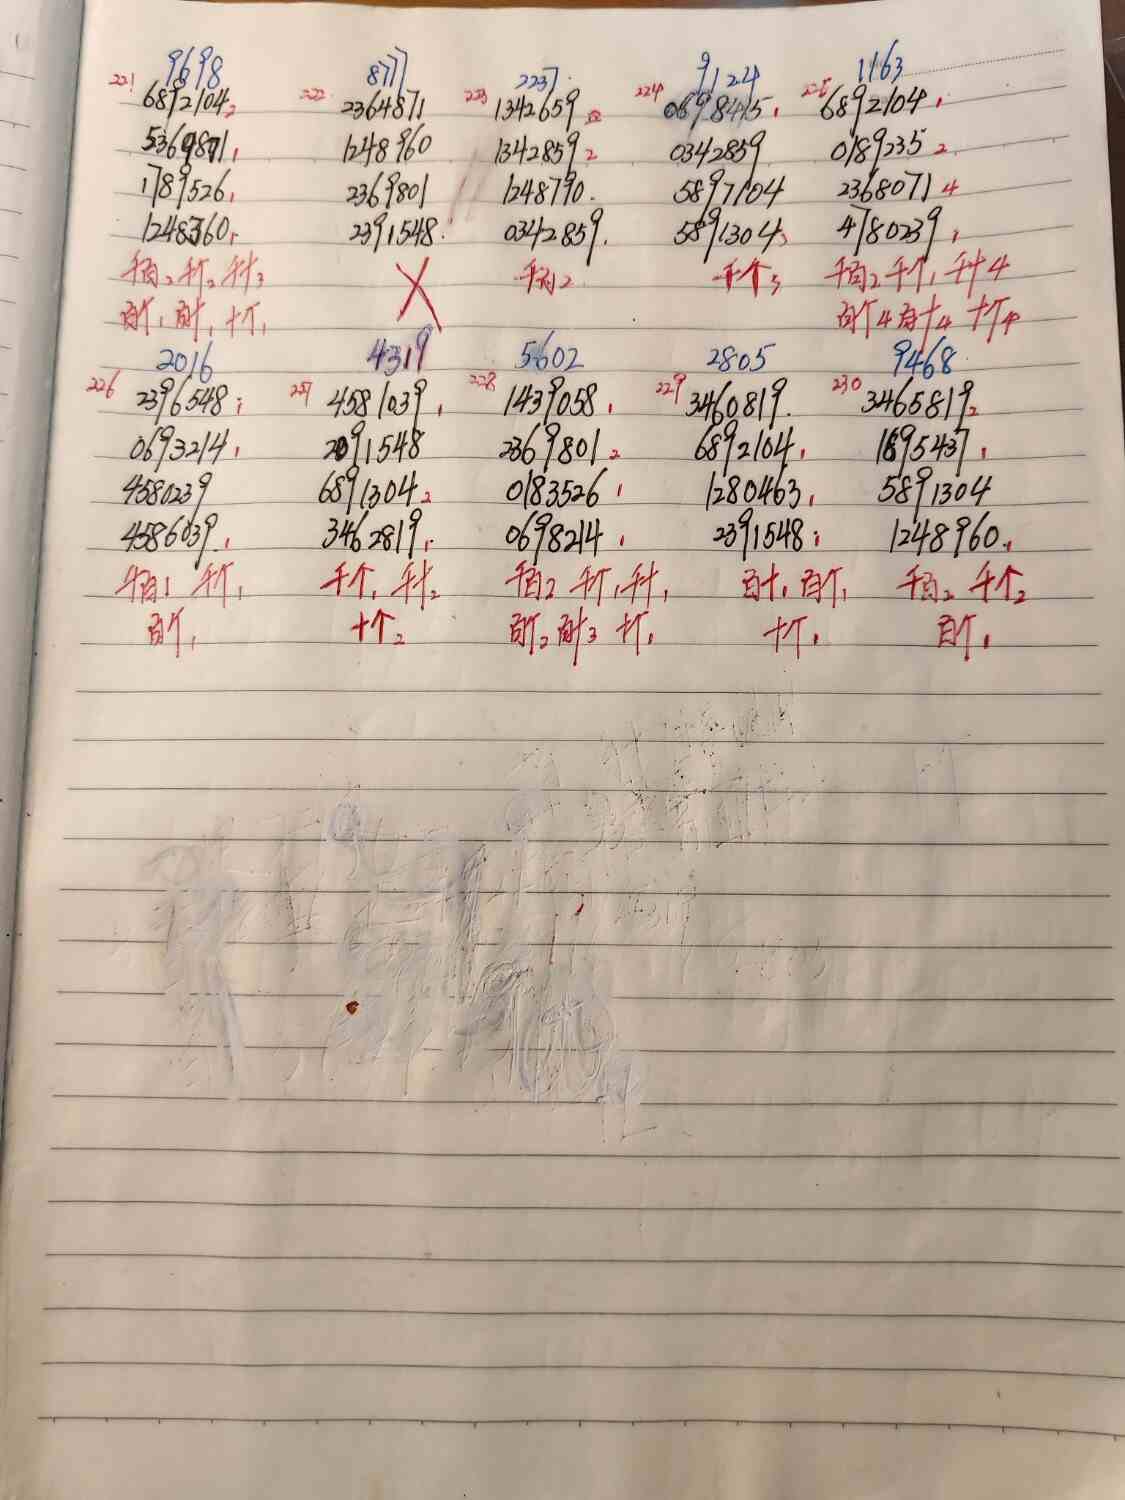 9698 8777 2237 9124 1163
221 6892104 2 222 2364871 223 1342659 224 0698415 1 225 6892104 1
5369871 1 1248960 1342859 2 0342859 0189235 2
1789526 1 2369801 1248790 5897104 2368071 4
1248360 1 2391548 0342859 5891304 3 4780239 1
千百2 千个2 千十3 X 千百2 千个3 千百2 千个1 千十4
百个1 百十1 十个1 百个4 百十4 十个4
2016 4319 5602 2805 9468
226 2396548 1 227 4581039 1 228 1439058 1 229 3460819 230 3465819 2
0693214 1 2091548 2369801 2 6892104 1 1695437 1
4580239 6891304 2 0183526 1 1280463 1 5891304
4586039 1 3462819 1 0698214 1 2391548 1 1248960 1
千百1 千个1 千个1 千十2 千百2 千个1 千十1 百十1 百个1 千百2 千个2
百个1 十个2 百个2 百十3 十个1 十个1 百个1